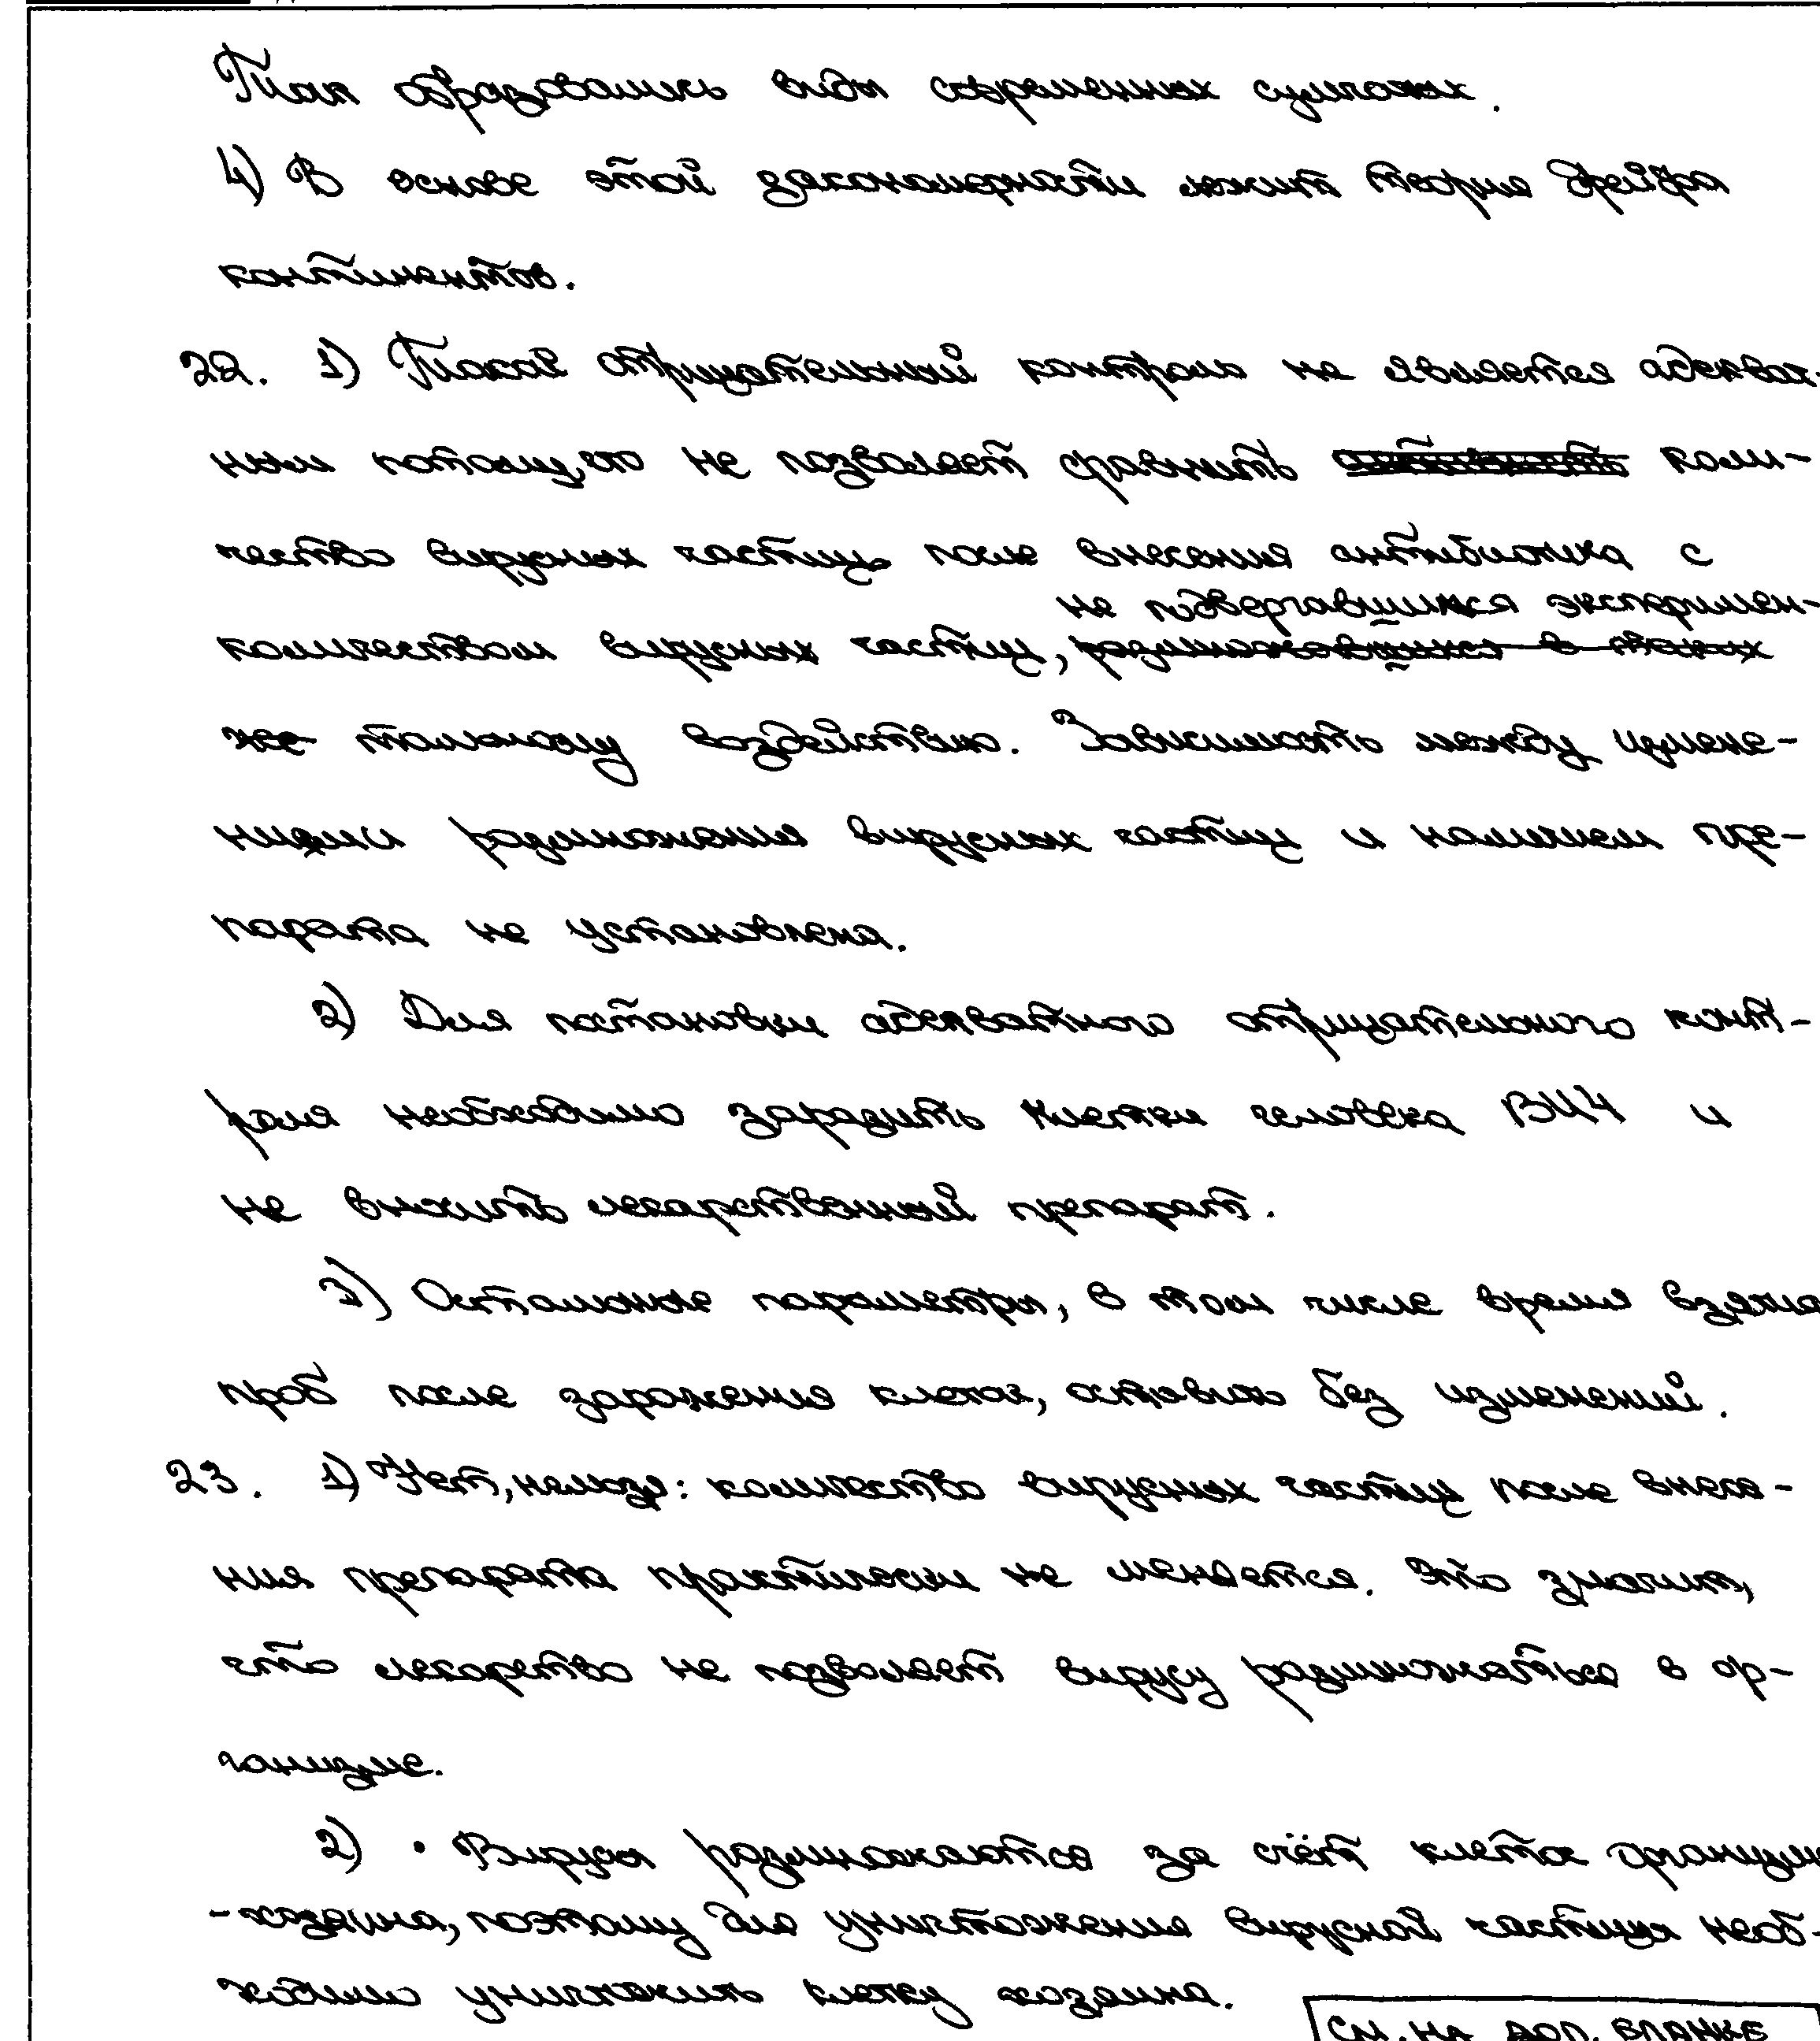 Так образовались виды современных сумчатых.
4) В основе этой закономерности лежит теория дрейфа
континентов.
22. 1) Такой отрицательный контроль не является адекват-
ным потому, что не позволяет сравнить коли-
чество вирусных частиц после внесения антибиотика с
не подвергавшимися эксперимен-
количеством вирусных частиц, размножавшихся в таких
же тальному воздействию. Зависимость между измене-
ниями размножения вирусных частиц и наличием пре-
парата не установлена.
2) Для постановки адекватного отрицательного конт-
роля необходимо заразить клетки человека ВИЧ и
не вносить лекарственный препарат.
3) Остальные параметры, в том числе время взятия
проб после заражения клеток, оставить без изменений.
23. 1) Нет, нельзя: количество вирусных частиц после внесе-
ния препарата практически не меняется. Это значит,
что лекарство не позволяет вирусу размножаться в ор-
ганизме.
2) • Вирусы размножаются за счёт клеток организма
-хозяина, поэтому для уничтожения вирусной частицы необ-
ходимо уничтожить клетку хозяина.
СМ. НА ДОП. БЛАНКЕ